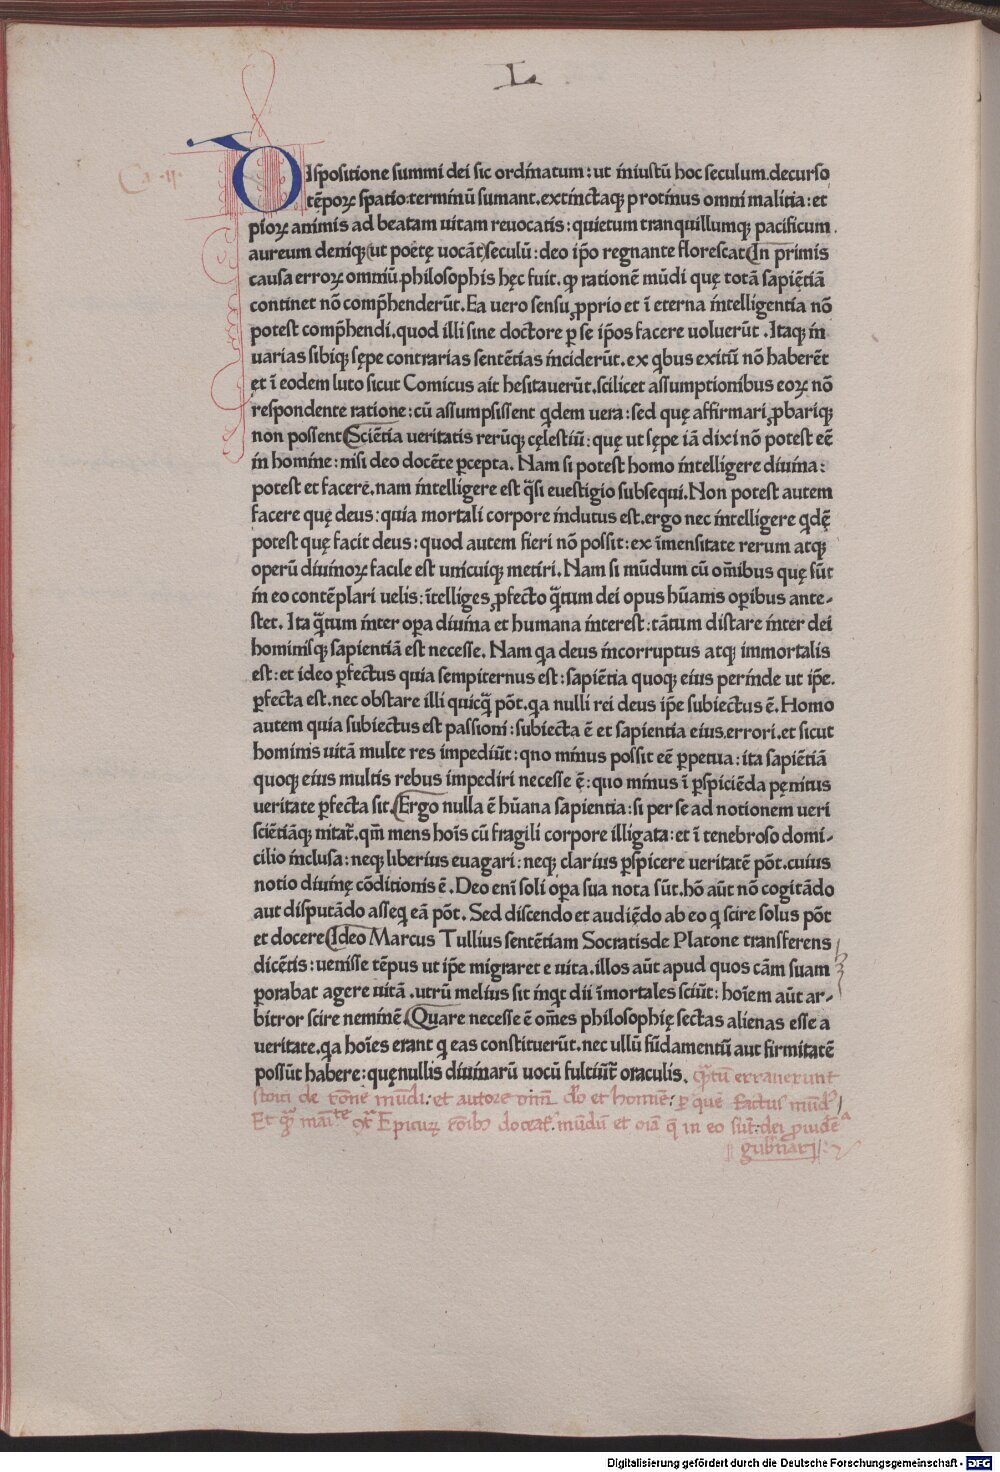 L
Ca. ij.
DIspositione summi dei sic ordinatum: ut iniustũ hoc seculum.decurso
tẽporꝝ spatio:terminũ sumant.extinctaqȝ protinus omni malitia: et
piorꝝ animis ad beatam uitam reuocatis: quietum tranquillumqȝ pacificum
aureum deniqȝ(ut poetę uocãt)seculũ: deo ip̃o regnante florescat(In primis
causa errorꝝ omniũ philosophis hęc fuit. ꝙ rationẽ mũdi quę totã sapiẽtiã
continet nõ comp̃henderũt. Ea uero sensu ꝓprio et ĩ eterna intelligentia nõ
potest comp̃hendi.quod illi sine doctore ꝑ se ip̃os facere uoluerũt . Itaqȝ in
uarias sibiqȝ sępe contrarias sentẽtias inciderũt. ex qͥbus exitũ nõ haberẽt
et ĩ eodem luto sicut Comicus ait hesitauerũt.scilicet assumptionibus eorꝝ nõ
respondente ratione: cũ assumpsissent qͥdem uera: sed quę affirmari ꝓbariqȝ
non possent(Sciẽtia ueritatis rerũqȝ cęlestiũ: quę ut sępe iã dixi nõ potest eẽ
in homine: nisi deo docẽte ꝑcepta. Nam si potest homo intelligere diuina:
potest et facere.nam intelligere est q̃si euestigio subsequi.Non potest autem
facere quę deus: quia mortali corpore indutus est.ergo nec intelligere qͥdẽ
potest quę facit deus: quod autem fieri nõ possit: ex ĩmensitate rerum atqȝ
operũ diuinorꝝ facile est unicuiqȝ metiri. Nam si mũdum cũ om̃ibus quę sũt
in eo contẽplari uelis: ĩtelliges ꝓfecto q̃tum dei opus hũanis oꝑibus ante-
stet. Ita q̃tum inter oꝑa diuina et humana interest: tãtum distare inter dei
hominisqȝ sapientiã est necesse. Nam qa deus incorruptus atqȝ immortalis
est: et ideo ꝑfectus quia sempiternus est: sapiẽtia quoqȝ eius perinde ut ip̃e.
ꝑfecta est.nec obstare illi quicq̃ põt.qa nulli rei deus ip̃e subiectus ẽ. Homo
autem quia subiectus est passioni: subiecta ẽ et sapientia eius.errori.et sicut
hominis uitã multe res impediũt: qno minus possit eẽ ꝑpetua: ita sapiẽtiã
quoqȝ eius multis rebus impediri necesse ẽ: quo minus ĩ ꝑspiciẽda pęnitus
ueritate ꝑfecta sit.(Ergo nulla ẽ hũana sapientia: si per se ad notionem ueri
sciẽtiãqȝ nitat̃. qm̃ mens hoĩs cũ fragili corpore illigata: et ĩ tenebroso domi-
cilio inclusa: neqȝ liberius euagari: neqȝ clarius ꝑspicere ueritatẽ põt.cuius
notio diuinę cõditionis ẽ. Deo enĩ soli oꝑa sua nota sũt. hõ aũt nõ cogitãdo
aut disputãdo asseq̃ eã põt. Sed discendo et audiẽdo ab eo q̃ scire solus põt
et docere(Ideo Marcus Tullius sentẽtiam Socratisde Platone transferens
dicẽtis: uenisse tẽpus ut ip̃e migraret e uita. illos aũt apud quos cãm suam
ꝑorabat agere uitã . utrũ melius sit inqͥt dii ĩmortales sciũt: hoĩem aũt ar-
bitror scire neminẽ.(Quare necesse ẽ om̃es philosophię sectas alienas esse a
ueritate.qa hoĩes erant q̃ eas constituerũt. nec ullũ fũdamentũ aut firmitatẽ
possũt habere: quęnullis diuinarũ uocũ fultiũt̃ oraculis. q̃tũ errauerunt
stoici de rõne mũdi: et autore oĩm deo et homine: ꝑ quẽ factus mũdus
Et Epicurꝝ mũdũ et oĩa q̃ in eo sũt: dei ꝓuidẽᵃ
gub̃nari
Digitalisierung gefördert durch die Deutsche Forschungsgemeinschaft - DFG